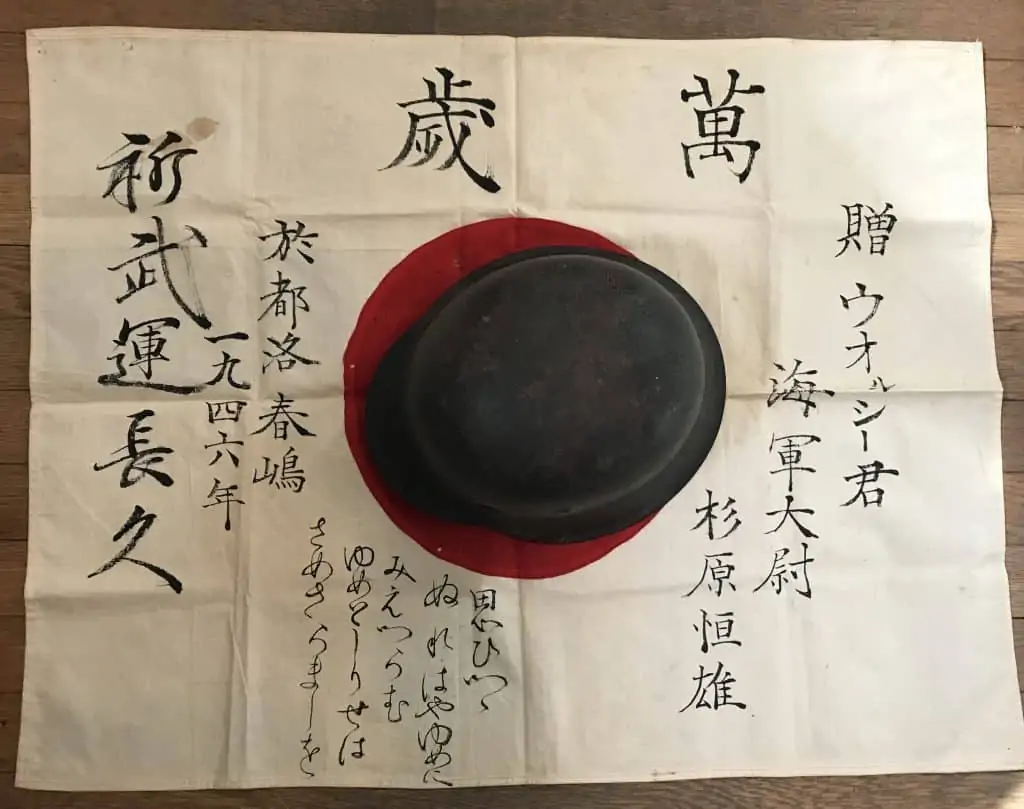 萬歲
贈 ウオルシー君
海軍大尉
杉原恒雄
思ひつゝ
ぬれはやゆめに
みえつらむ
ゆめとしりせは
さめさらましを
於都洛春嶋
一九四六年
祈武運長久